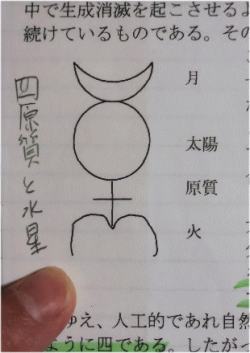 中で生成消滅を起こさせる
続けているものである。その
月
太陽
原質
火
四原質と水星
ゆえ、人工的であれ自然
ように四である。したがっ